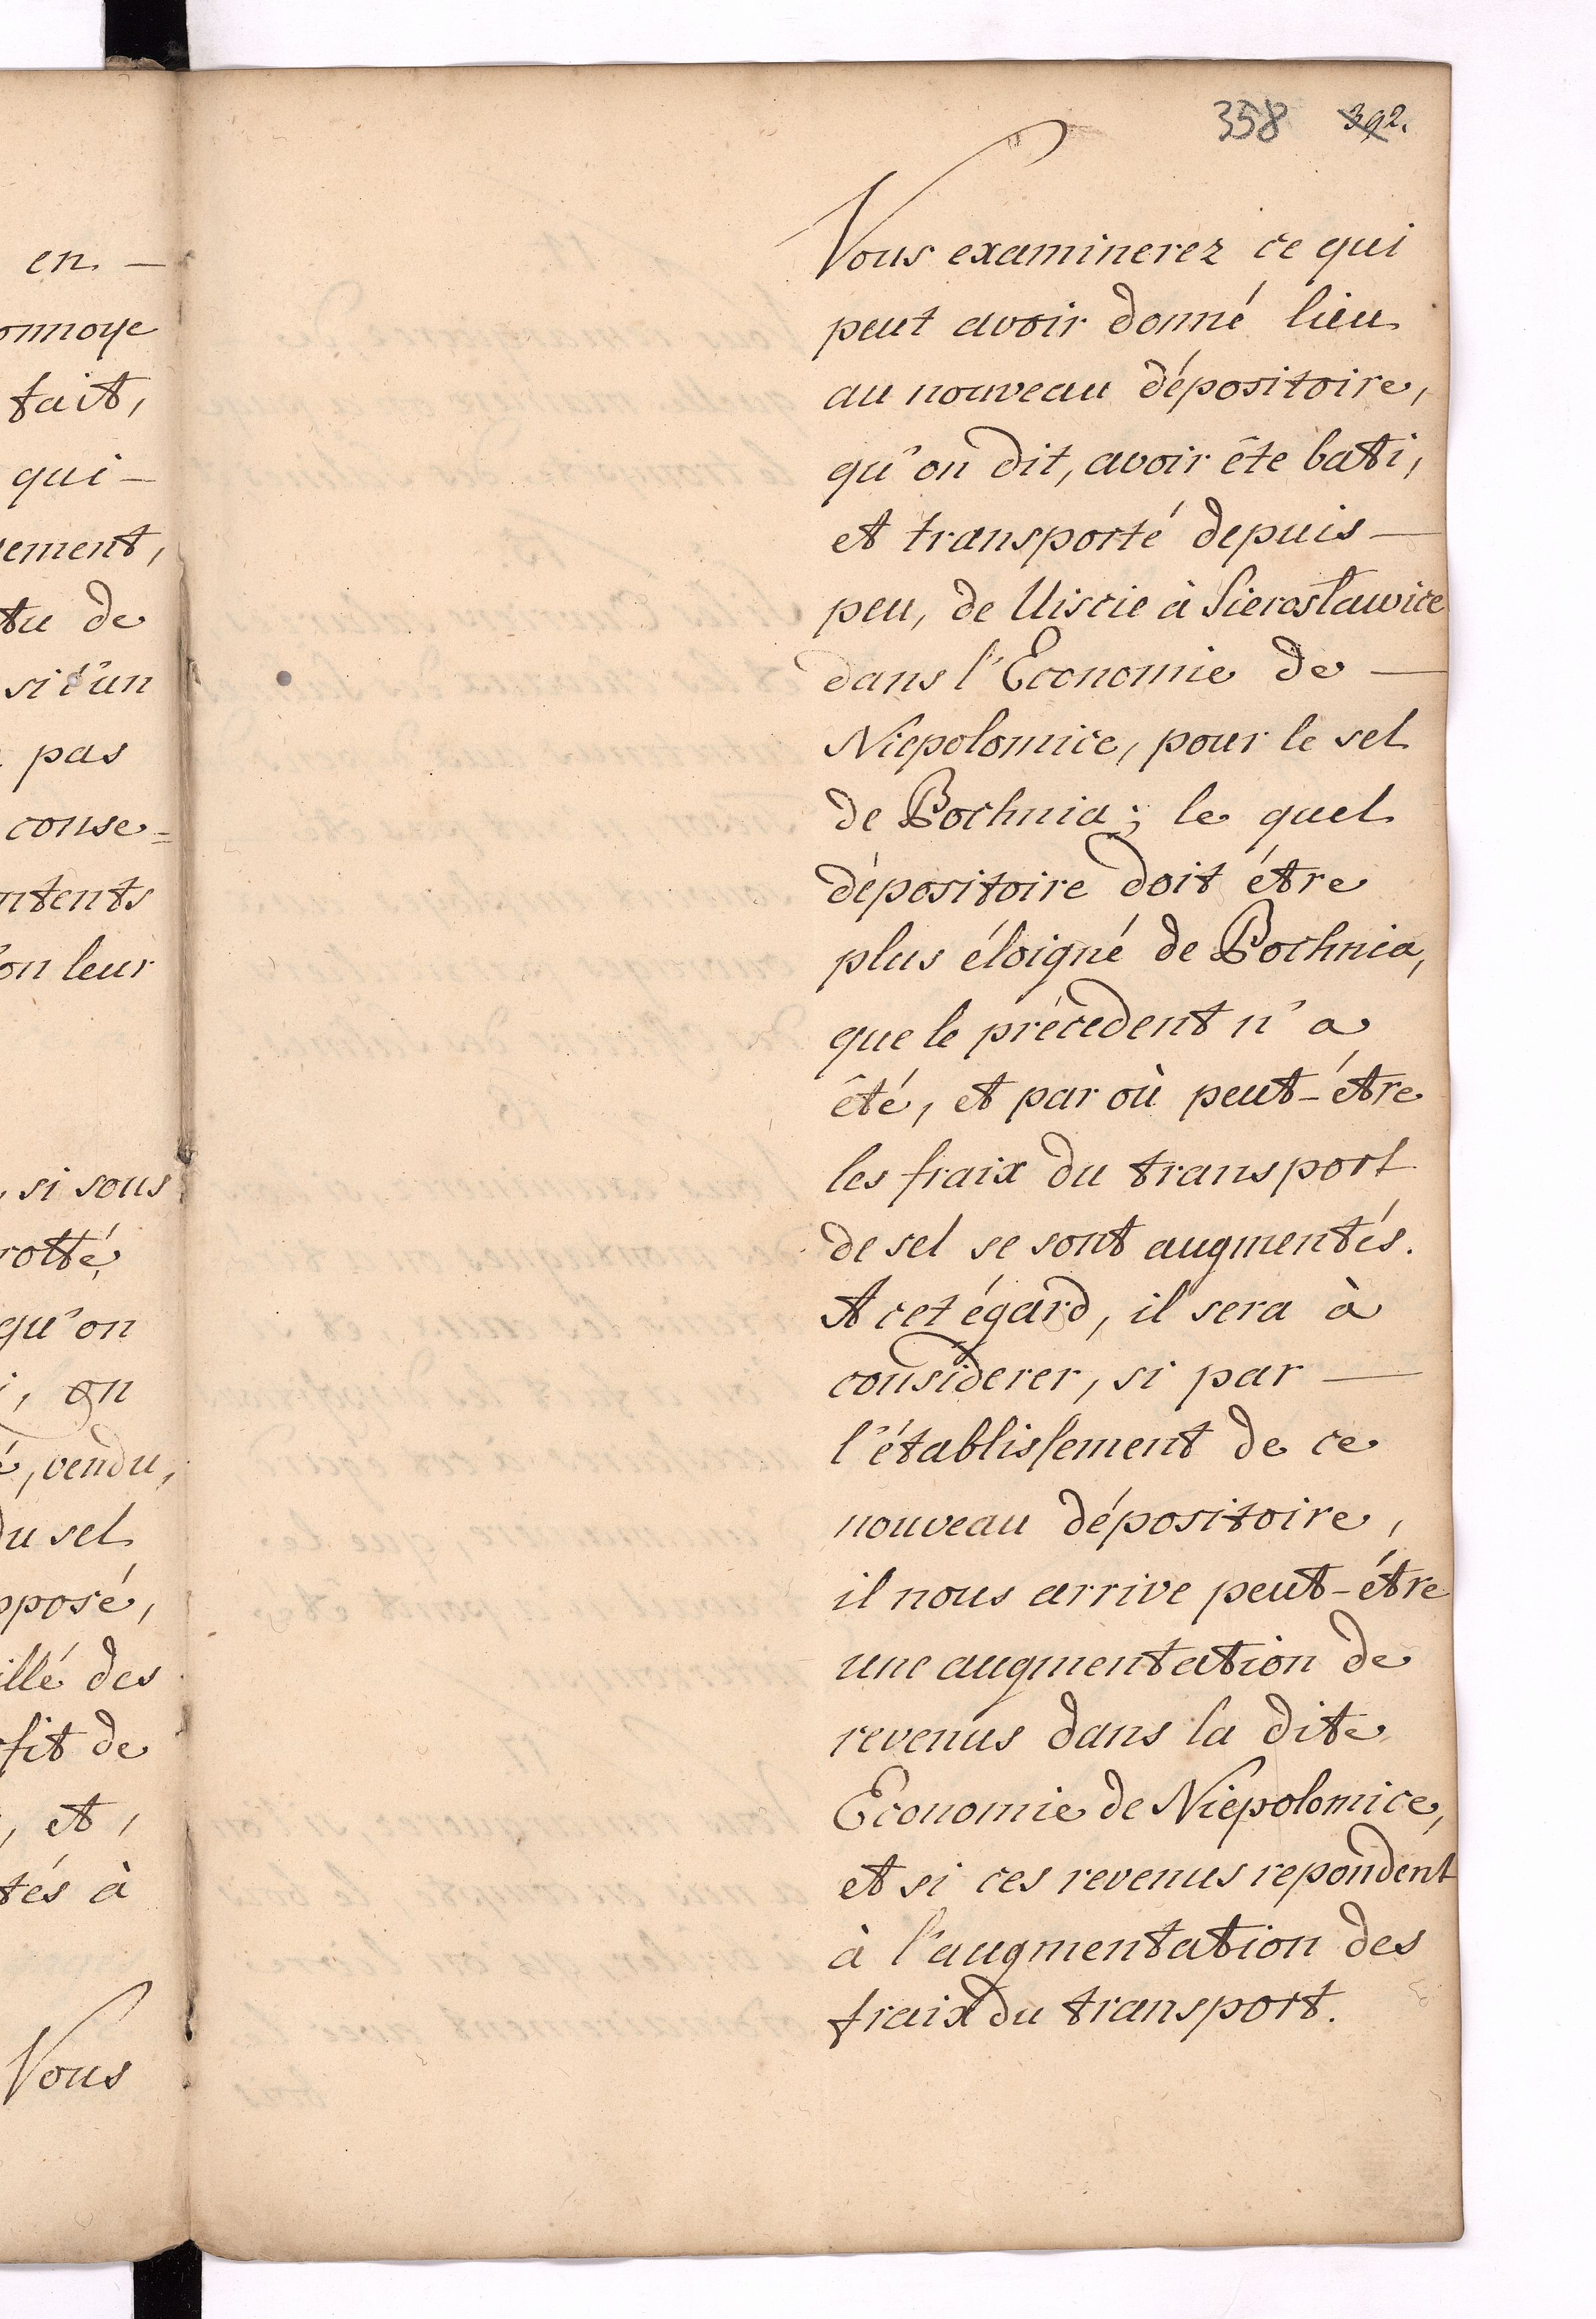 en. —
onnoye
fait,
qui —
ement,
tu de
si l'un
pas
conse=
ntents
'on leur
, si sous
rotté,
qu'on
, on
é, vendu,
du sel
pposé,
illé des
fit de
, et,
tés à
Vous
358 392.
Vous examinerez ce qui
peut avoir donné lieu
au nouveau dépositoire,
qu'on dit, avoir éte bati,
et transporté depuis —
peu, de Uiscie à Sierosławice
dans l'Economie de —
Niepolomice, pour le sel
de Bochnia; le quel
dépositoire doit étre
plus éloigné de Bochnia,
que le précedent n'a
été, et par où peut-étre
les fraix du transport
de sel se sont augmentés.
A cet égard, il sera à
considerer, si par —
l'établissement de ce
nouveau dépositoire,
il nous arrive peut-étre
une augmentation de
revenus dans la dite
Economie de Niepolomice,
et si ces revenus repondent
à l'augmentation des
fraix du transport.